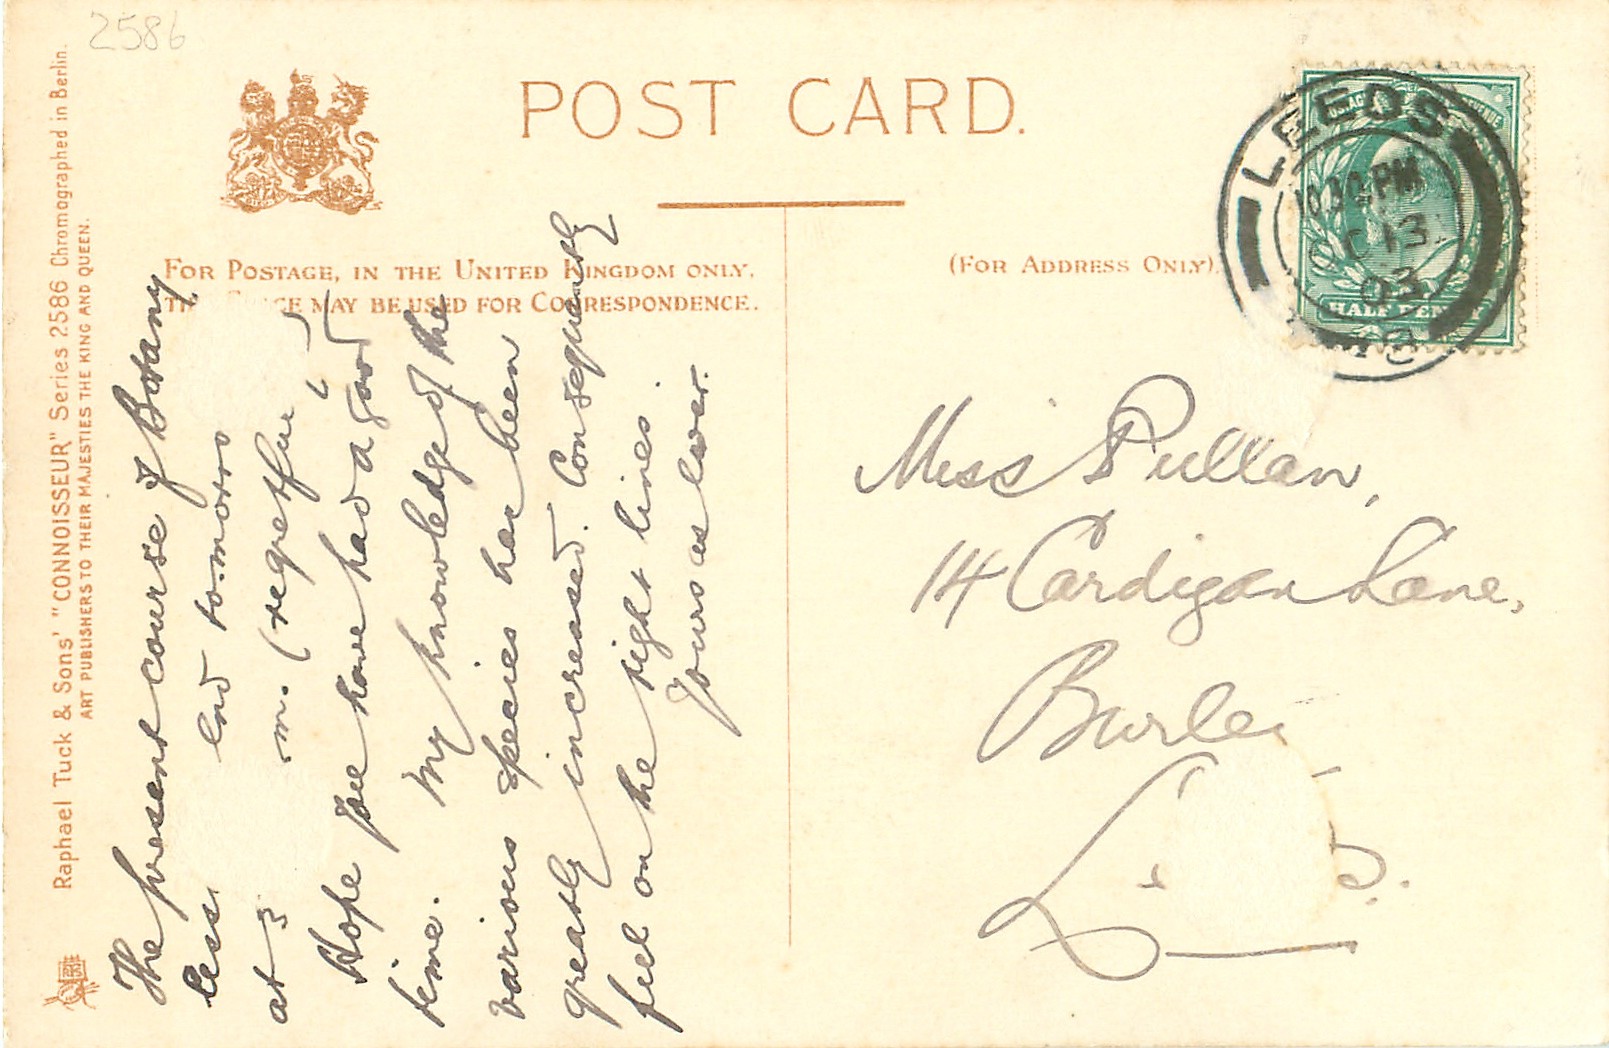 2586
Raphael Tuck & Sons' "CONNOISSEUR" Series 2586 Chromographed in Berlin.
ART PUBLISHERS TO THEIR MAJESTIES THE KING AND QUEEN.
POST CARD.
FOR POSTAGE, IN THE UNITED KINGDOM ONLY,
MAY BE USED FOR CORRESPONDENCE.
(FOR ADDRESS ONLY).
LEEDS
10.30 PM
OC 13
03
HALF PENNY
The present course of Botany
end tomorrow
at 3 m.
Hope you have had a good
time. My knowledge of the
various species has been
greatly increased. Consequently
feel on the right lines
Yours as ever.
Miss Pullan,
14 Cardigan Lane,
Burle